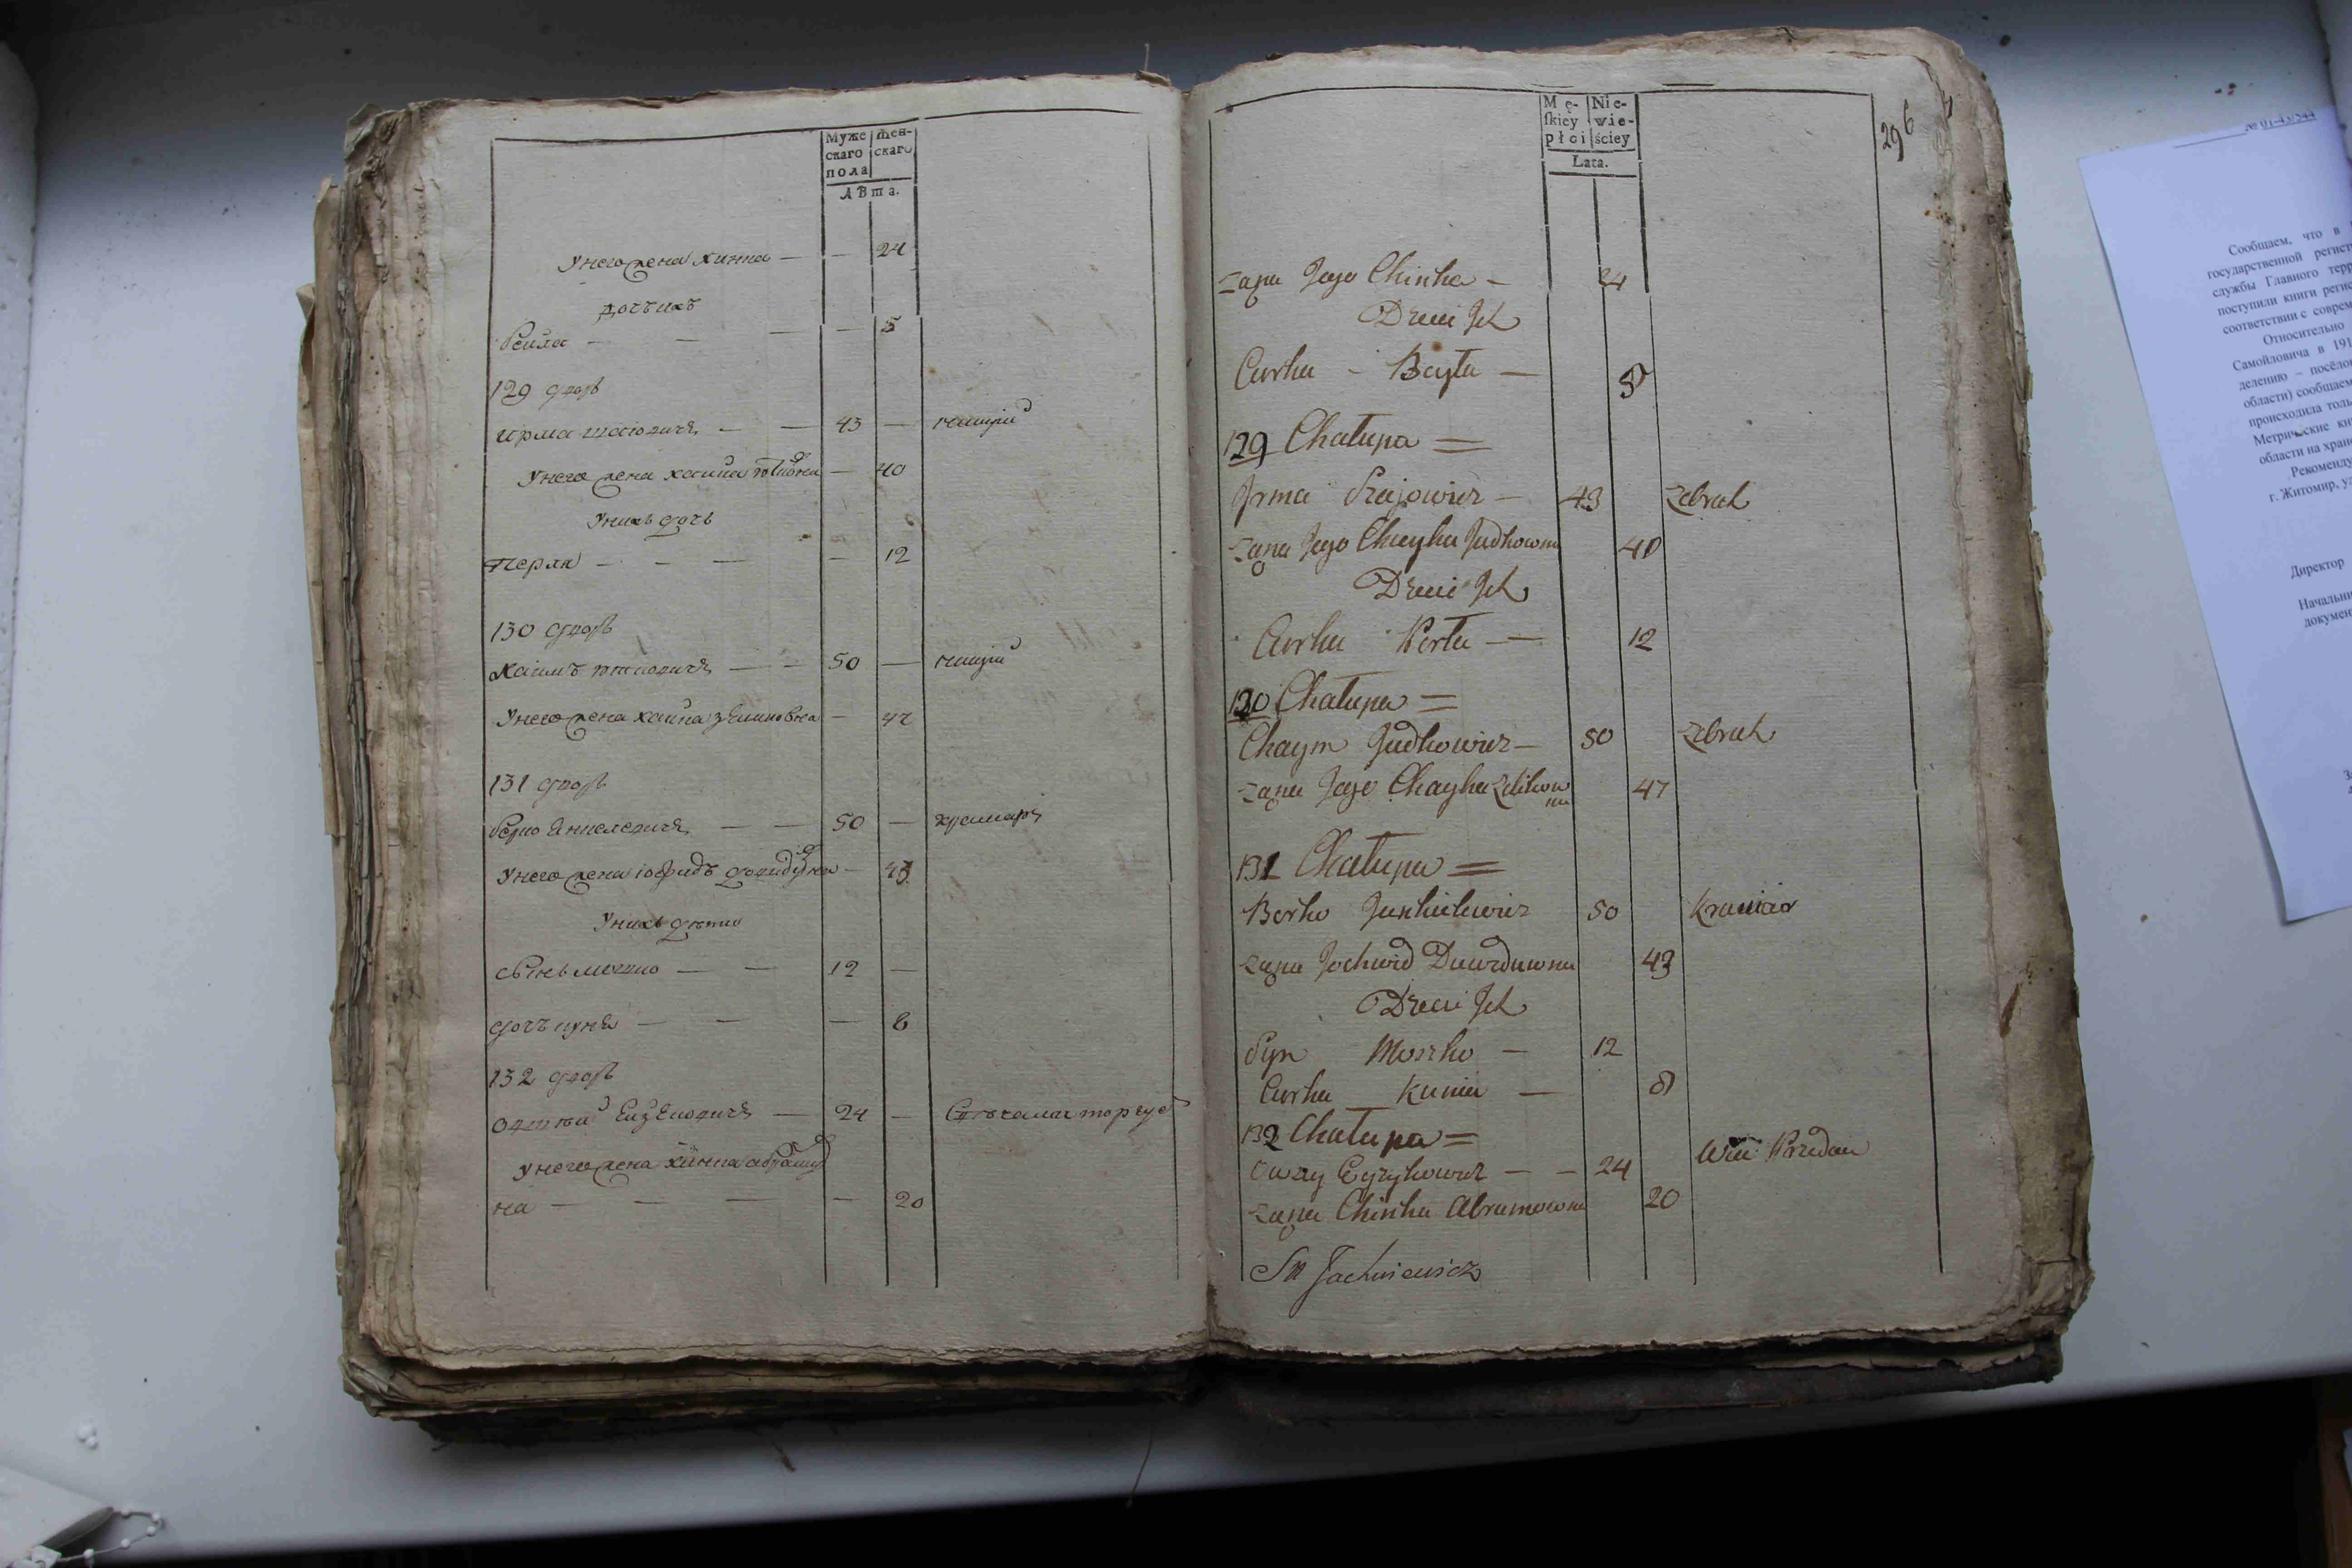 Муже скаго пола
Жен- скаго
лѣта.
у него жена Хинка — — 24
дочъ ихъ
Бейла — — — — 5
129 дворъ
Ирма Шаiовичъ — — 43 — нищій
у него жена Хайка — 40
у нихъ дочь
Перла — — — — 12
130 дворъ
Хаимъ — — 50 — нищій
у него жена Хайка — 47
131 дворъ
Берко Янкелевичъ — — 50 — крамаръ
у него жена — 43
у нихъ дѣти
сынъ Мошко — — 12 —
дочъ Куня — — — 8
132 дворъ
— 24 —
у него жена Хинка
на — — — — 20
Mę- skiey płci
Nie- wie- ściey
Lata.
296
Żąna Jego Chinka — 24
Dzieci Ich
Curka - Bayła — 5
129 Chałupa =
Jrma Szajowicz — 43 Żebrak
Żąna Jego Chayka Judkowna 40
Dzieci Ich
Curka Perła — 12
130 Chałupa =
Chaym Judkowicz — 50 Żebrak
Żąna Jego Chayka Zelikow
na 47
131 Chałupa =
Berko Jankielewicz 50 Kramar
Żąna Jochwid Dawidowna 43
Dzieci Ich
Syn Moszko — 12
Curka Kunia — 8
132 Chałupa =
Owszy — — 24
Żąna Chinka Abramowna 20
Jachniewicz
№ 01-43/544
Сообщаем, что в
государственной регист
службы Главного терр
поступили книги регис
соответствии с соврем
Относительно
Самойловича в 191
делению – посёло
области) сообщаем
происходила толь
Метрические кни
области на хран
Рекоменду
г. Житомир, ул
Директор
Начальни
докумен